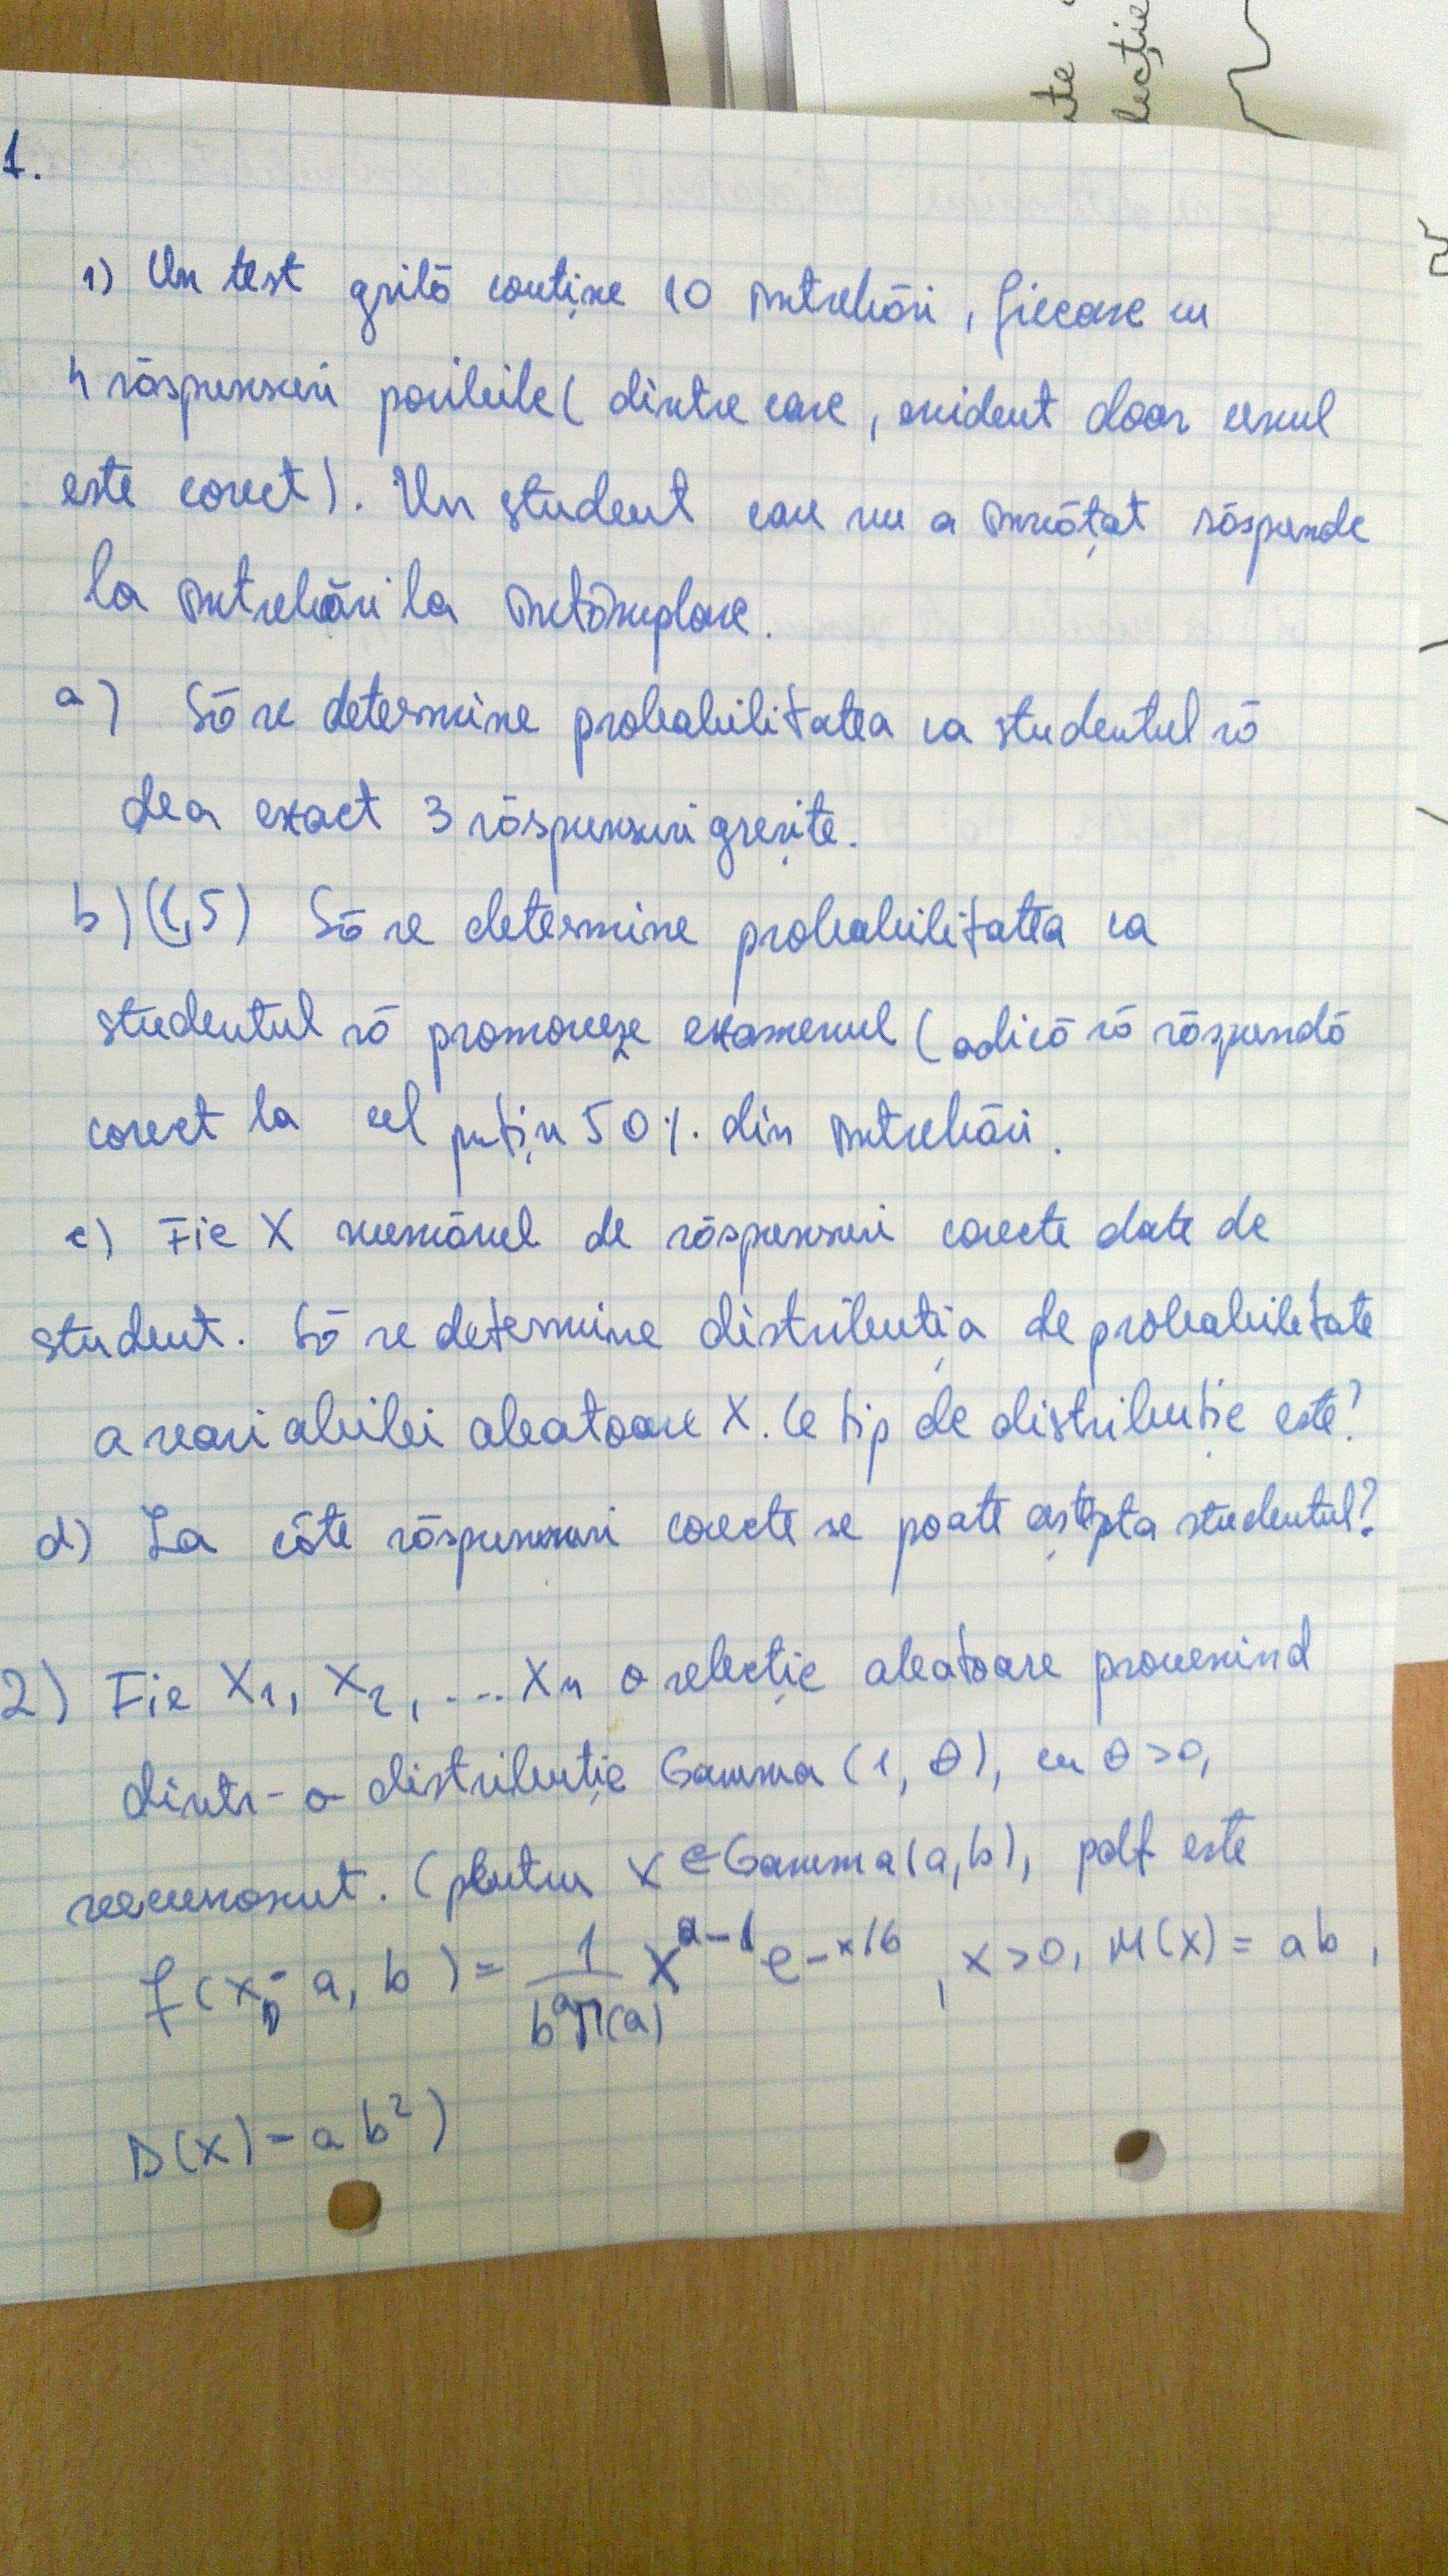 1.
1) Un test grilă conține 10 întrebări, fiecare cu
4 răspunsuri posibile (dintre care, evident doar unul
este corect). Un student care nu a învățat răspunde
la întrebări la întâmplare.
a) Să se determine probabilitatea ca studentul să
dea exact 3 răspunsuri greșite.
b) (1,5) Să se determine probabilitatea ca
studentul să promoveze examenul (adică să răspundă
corect la cel puțin 50% din întrebări.
c) Fie X numărul de răspunsuri corecte date de
student. Să se determine distribuția de probabilitate
a variabilei aleatoare X. Ce tip de distribuție este?
d) La câte răspunsuri corecte se poate aștepta studentul?
2) Fie X1, X2, ... Xn o selecție aleatoare provenind
dintr-o distribuție Gamma (1, θ), cu θ>0,
necunoscut. (pentru X ∈ Gamma(a,b), pdf este
f(x; a, b) = 1/(b^a Γ(a)) x^(a-1) e^(-x/b), x>0, M(X) = ab,
D(X) = ab²)
lecție
te